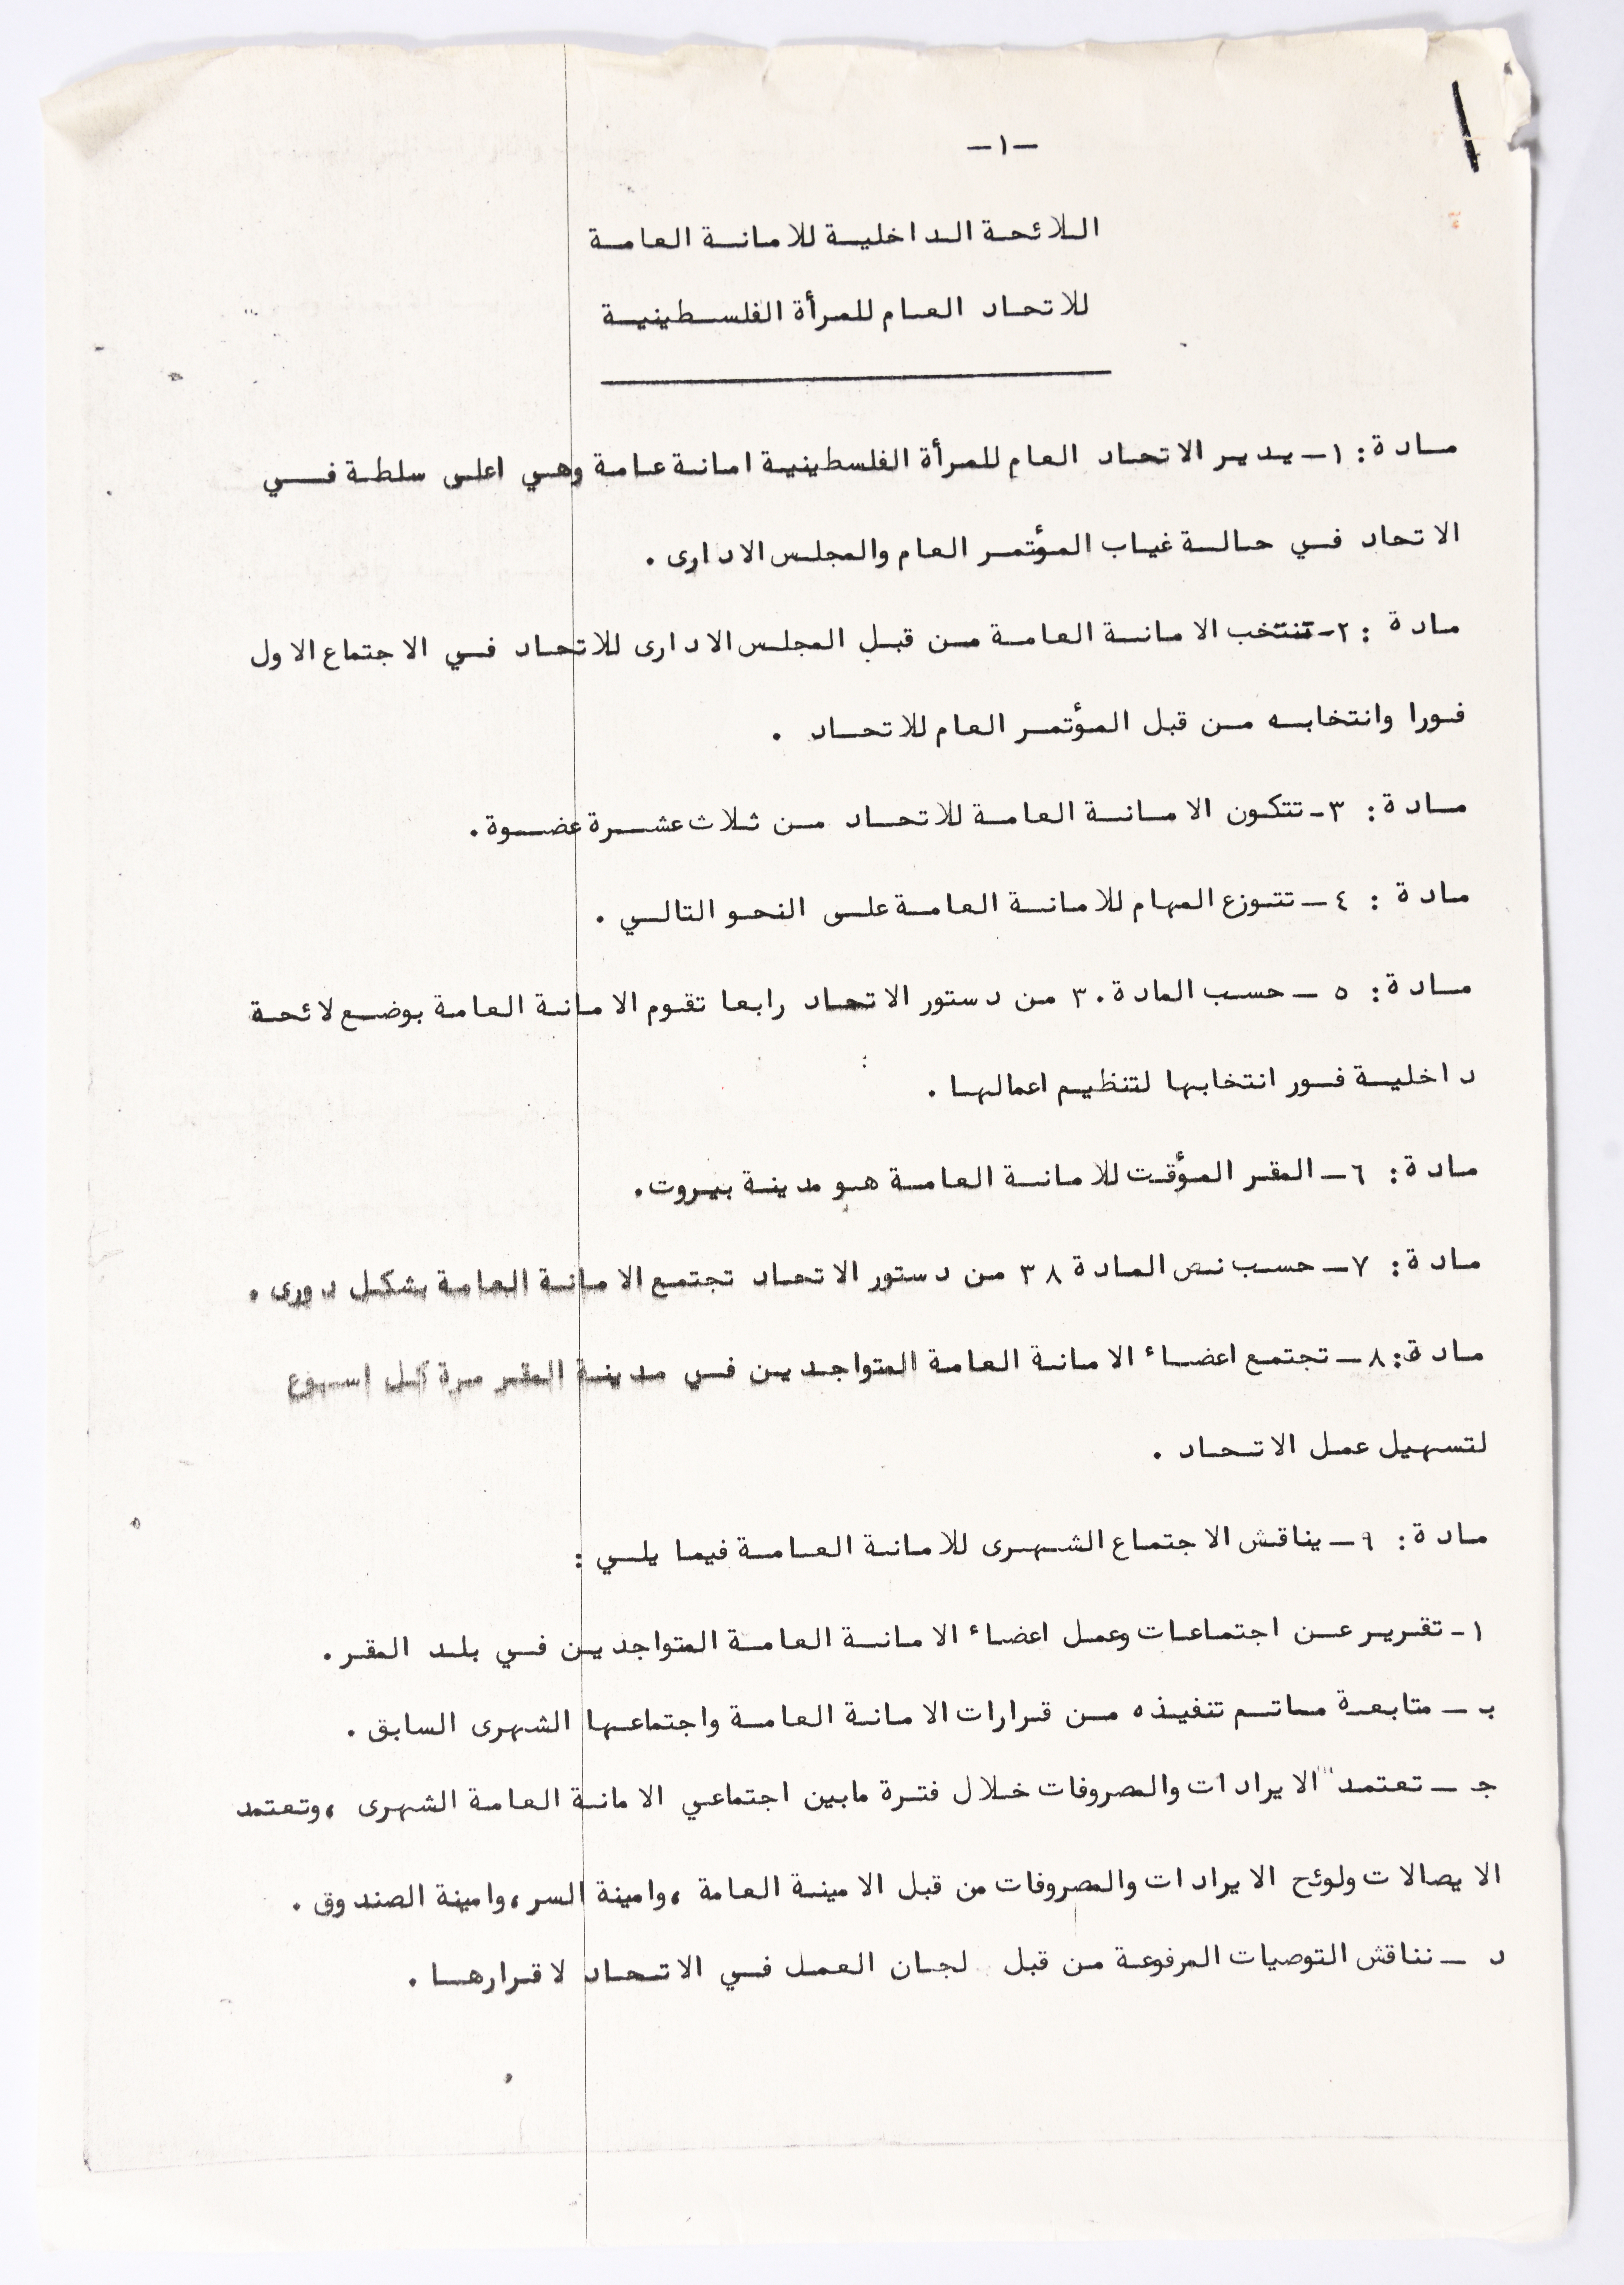 -١-
اللائحة الداخلية للامانة العامة
للاتحاد العام للمرأة الفلسطينية
مادة: ١- يدير الاتحاد العام للمرأة الفلسطينية امانة عامة وهي اعلى سلطة في
الاتحاد في حالة غياب المؤتمر العام والمجلس الادارى .
مادة :٢- تنتخب الامانة العامة من قبل المجلس الادارى للاتحاد في الاجتماع الاول
فورا وانتخابه من قبل المؤتمر العام للاتحاد .
مادة: ٣- تتكون الامانة العامة للاتحاد من ثلاث عشرة عضوة.
مادة : ٤- تتوزع المهام للامانة العامة على النحو التالي .
مادة: ٥ - حسب المادة ٣٠ من دستور الاتحاد رابعا تقوم الامانة العامة بوضع لائحة
داخلية فور انتخابها لتنظيم اعمالها .
مادة: ٦- المقر المؤقت للامانة العامة هو مدينة بيروت.
مادة: ٧- حسب نص المادة ٣٨ من دستور الاتحاد تجتمع الامانة العامة بشكل دورى .
مادة: ٨- تجتمع اعضاء الامانة العامة المتواجدين في مدينة المقر مرة كل اسبوع
لتسهيل عمل الاتحاد .
مادة: ٩- يناقش الاجتماع الشهرى للامانة العامة فيما يلي :
١- تقرير عن اجتماعات وعمل اعضاء الامانة العامة المتواجدين في بلد المقر.
ب - متابعة ماتم تنفيذه من قرارات الامانة العامة واجتماعها الشهرى السابق .
ج - تعتمد الايرادات والمصروفات خلال فترة مابين اجتماعي الامانة العامة الشهرى ،وتعتمد
الايصالات ولوئح الايرادات والمصروفات من قبل الامينة العامة ،وامينة السر،وامينة الصندوق .
د - نناقش التوصيات المرفوعة من قبل لجان العمل في الاتحاد لاقرارها .